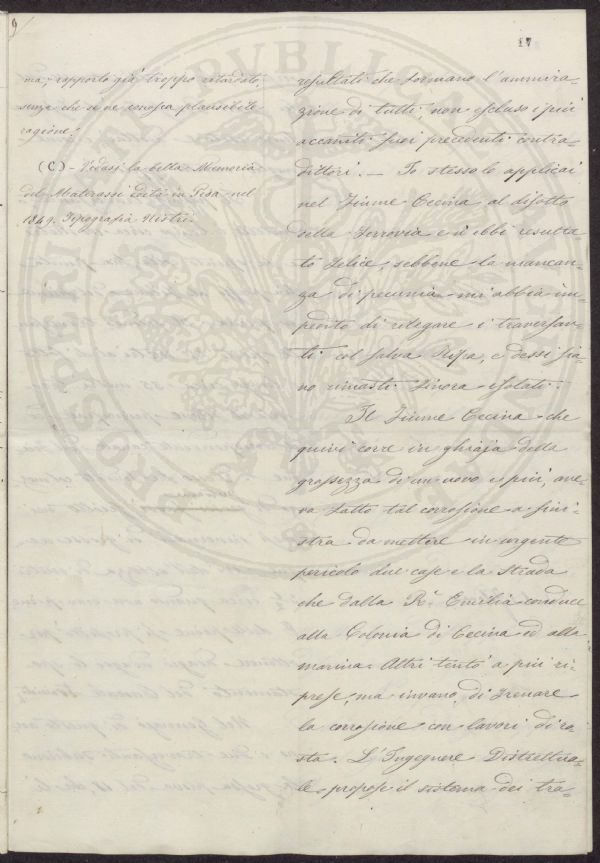 9
17
ma, rapporto già troppo ritardato,
senza che se ne conosca plausibile
ragione!
(C) - Vedasi la bella Memoria
del Materassi edita in Pisa nel
1849. Tipografia Nistri.
resultati che formano l'ammira-
zione di tutti non escluso i più
accaniti suoi precedenti contra-
dittori. — Io stesso lo applicai
nel Fiume Cecina al disotto
della Ferrovia e n'ebbi resulta
to felice, sebbene la mancan-
za di pecunia mi abbia im-
pedito di rilegare i traversan-
ti col salva Ripa, e dessi sia-
no rimasti finora isolati.
Il Fiume Cecina che
quivi corre in ghiaja della
grossezza di un uovo e più, ave-
va fatto tal corrosione a sini-
stra da mettere in urgente
pericolo due case e la Strada
che dalla R.ª Emilia conduce
alla Colonia di Cecina ed alla
marina. Altri tentò a più ri-
prese, ma invano, di frenare
la corrosione con lavori di ro
sta. L'Ingegnere Distrettua-
le propose il sistema dei tra-
PROSPERITATI PVBLICAE